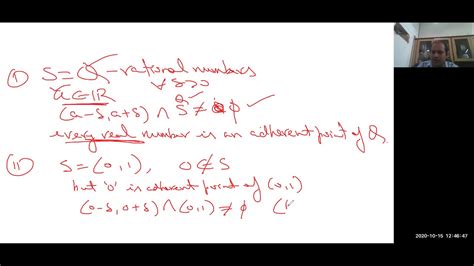 (i) S = Q - rational numbers
a ∈ ℝ ∀ δ>0
(a-δ, a+δ) ∩ S ≠ φ ✓
every real number is an adherent point of Q.
(ii) S = (0,1), 0 ∉ S
but '0' is adherent point of (0,1)
(0-δ, 0+δ) ∩ (0,1) ≠ φ (
2020-10-15 12:46:47